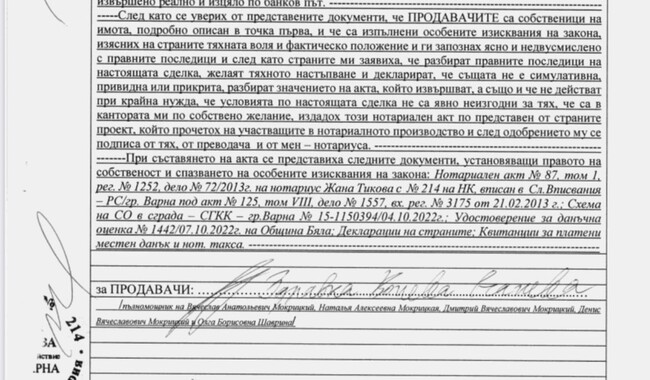 извършено реално и изцяло по банков път.
-----След като се уверих от представените документи, че ПРОДАВАЧИТЕ са собственици на
имота, подробно описан в точка първа, и че са изпълнени особените изисквания на закона,
изясних на страните тяхната воля и фактическо положение и ги запознах ясно и недвусмислено
с правните последици и след като страните ми заявиха, че разбират правните последици на
настоящата сделка, желаят тяхното настъпване и декларират, че същата не е симулативна,
привидна или прикрита, разбират значението на акта, който извършват, а също и че не действат
при крайна нужда, че условията по настоящата сделка не са явно неизгодни за тях, че са в
кантората ми по собствено желание, издадох този нотариален акт по представен от страните
проект, който прочетох на участващите в нотариалното производство и след одобрението му се
подписа от тях, от преводача и от мен – нотариуса.
-----При съставянето на акта се представиха следните документи, установяващи правото на
собственост и спазването на особените изисквания на закона: Нотариален акт № 87, том 1,
рег. № 1252, дело № 72/2013г. на нотариус Жана Тикова с № 214 на НК, вписан в Сл.Вписвания
– РС/гр. Варна под акт № 125, том VIII, дело № 1557, вх. рег. № 3175 от 21.02.2013 г.; Схема
на СО в сграда – СГКК – гр.Варна № 15-1150394/04.10.2022г.; Удостоверение за данъчна
оценка № 1442/07.10.2022г. на Община Бяла; Декларации на страните; Квитанции за платени
местен данък и нот. такса.
за ПРОДАВАЧИ:
/пълномощник на Вячеслав Анатольович Мокрицкий, Наталья Алексеевна Мокрицкая, Дмитрий Вячеславович Мокрицкий, Денис
Вячеславович Мокрицкий и Олга Борисовна Шаврина/
214